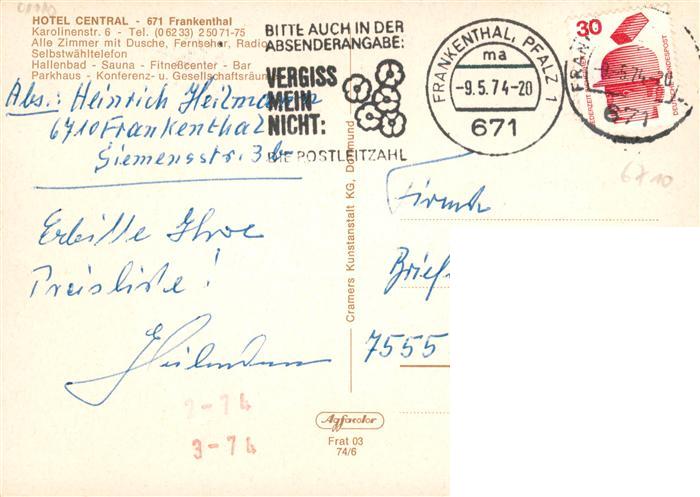 HOTEL CENTRAL - 671 Frankenthal
Karolinenstr. 6 - Tel. (06233) 25071-75
Alle Zimmer mit Dusche, Fernseher, Radio
Selbstwähltelefon
Hallenbad - Sauna - Fitneßcenter - Bar
Parkhaus - Konferenz- u. Gesellschaftsräume
Abs.: Heinrich Heilmann
6710 Frankenthal
Siemensstr. 3b
Erbitte Ihre
Preisliste!
Heilmann
2-74
3-74
BITTE AUCH IN DER
ABSENDERANGABE:
VERGISS
MEIN
NICHT:
DIE POSTLEITZAHL
FRANKENTHAL, PFALZ 1
ma
-9.5.74-20
671
30
JEDERZEIT
DEUTSCHE BUNDESPOST
FRAN
-9.5.74-20
671
6710
Firma
Brief
7555
Cramers Kunstanstalt KG, Dortmund
Agfacolor
Frat 03
74/6